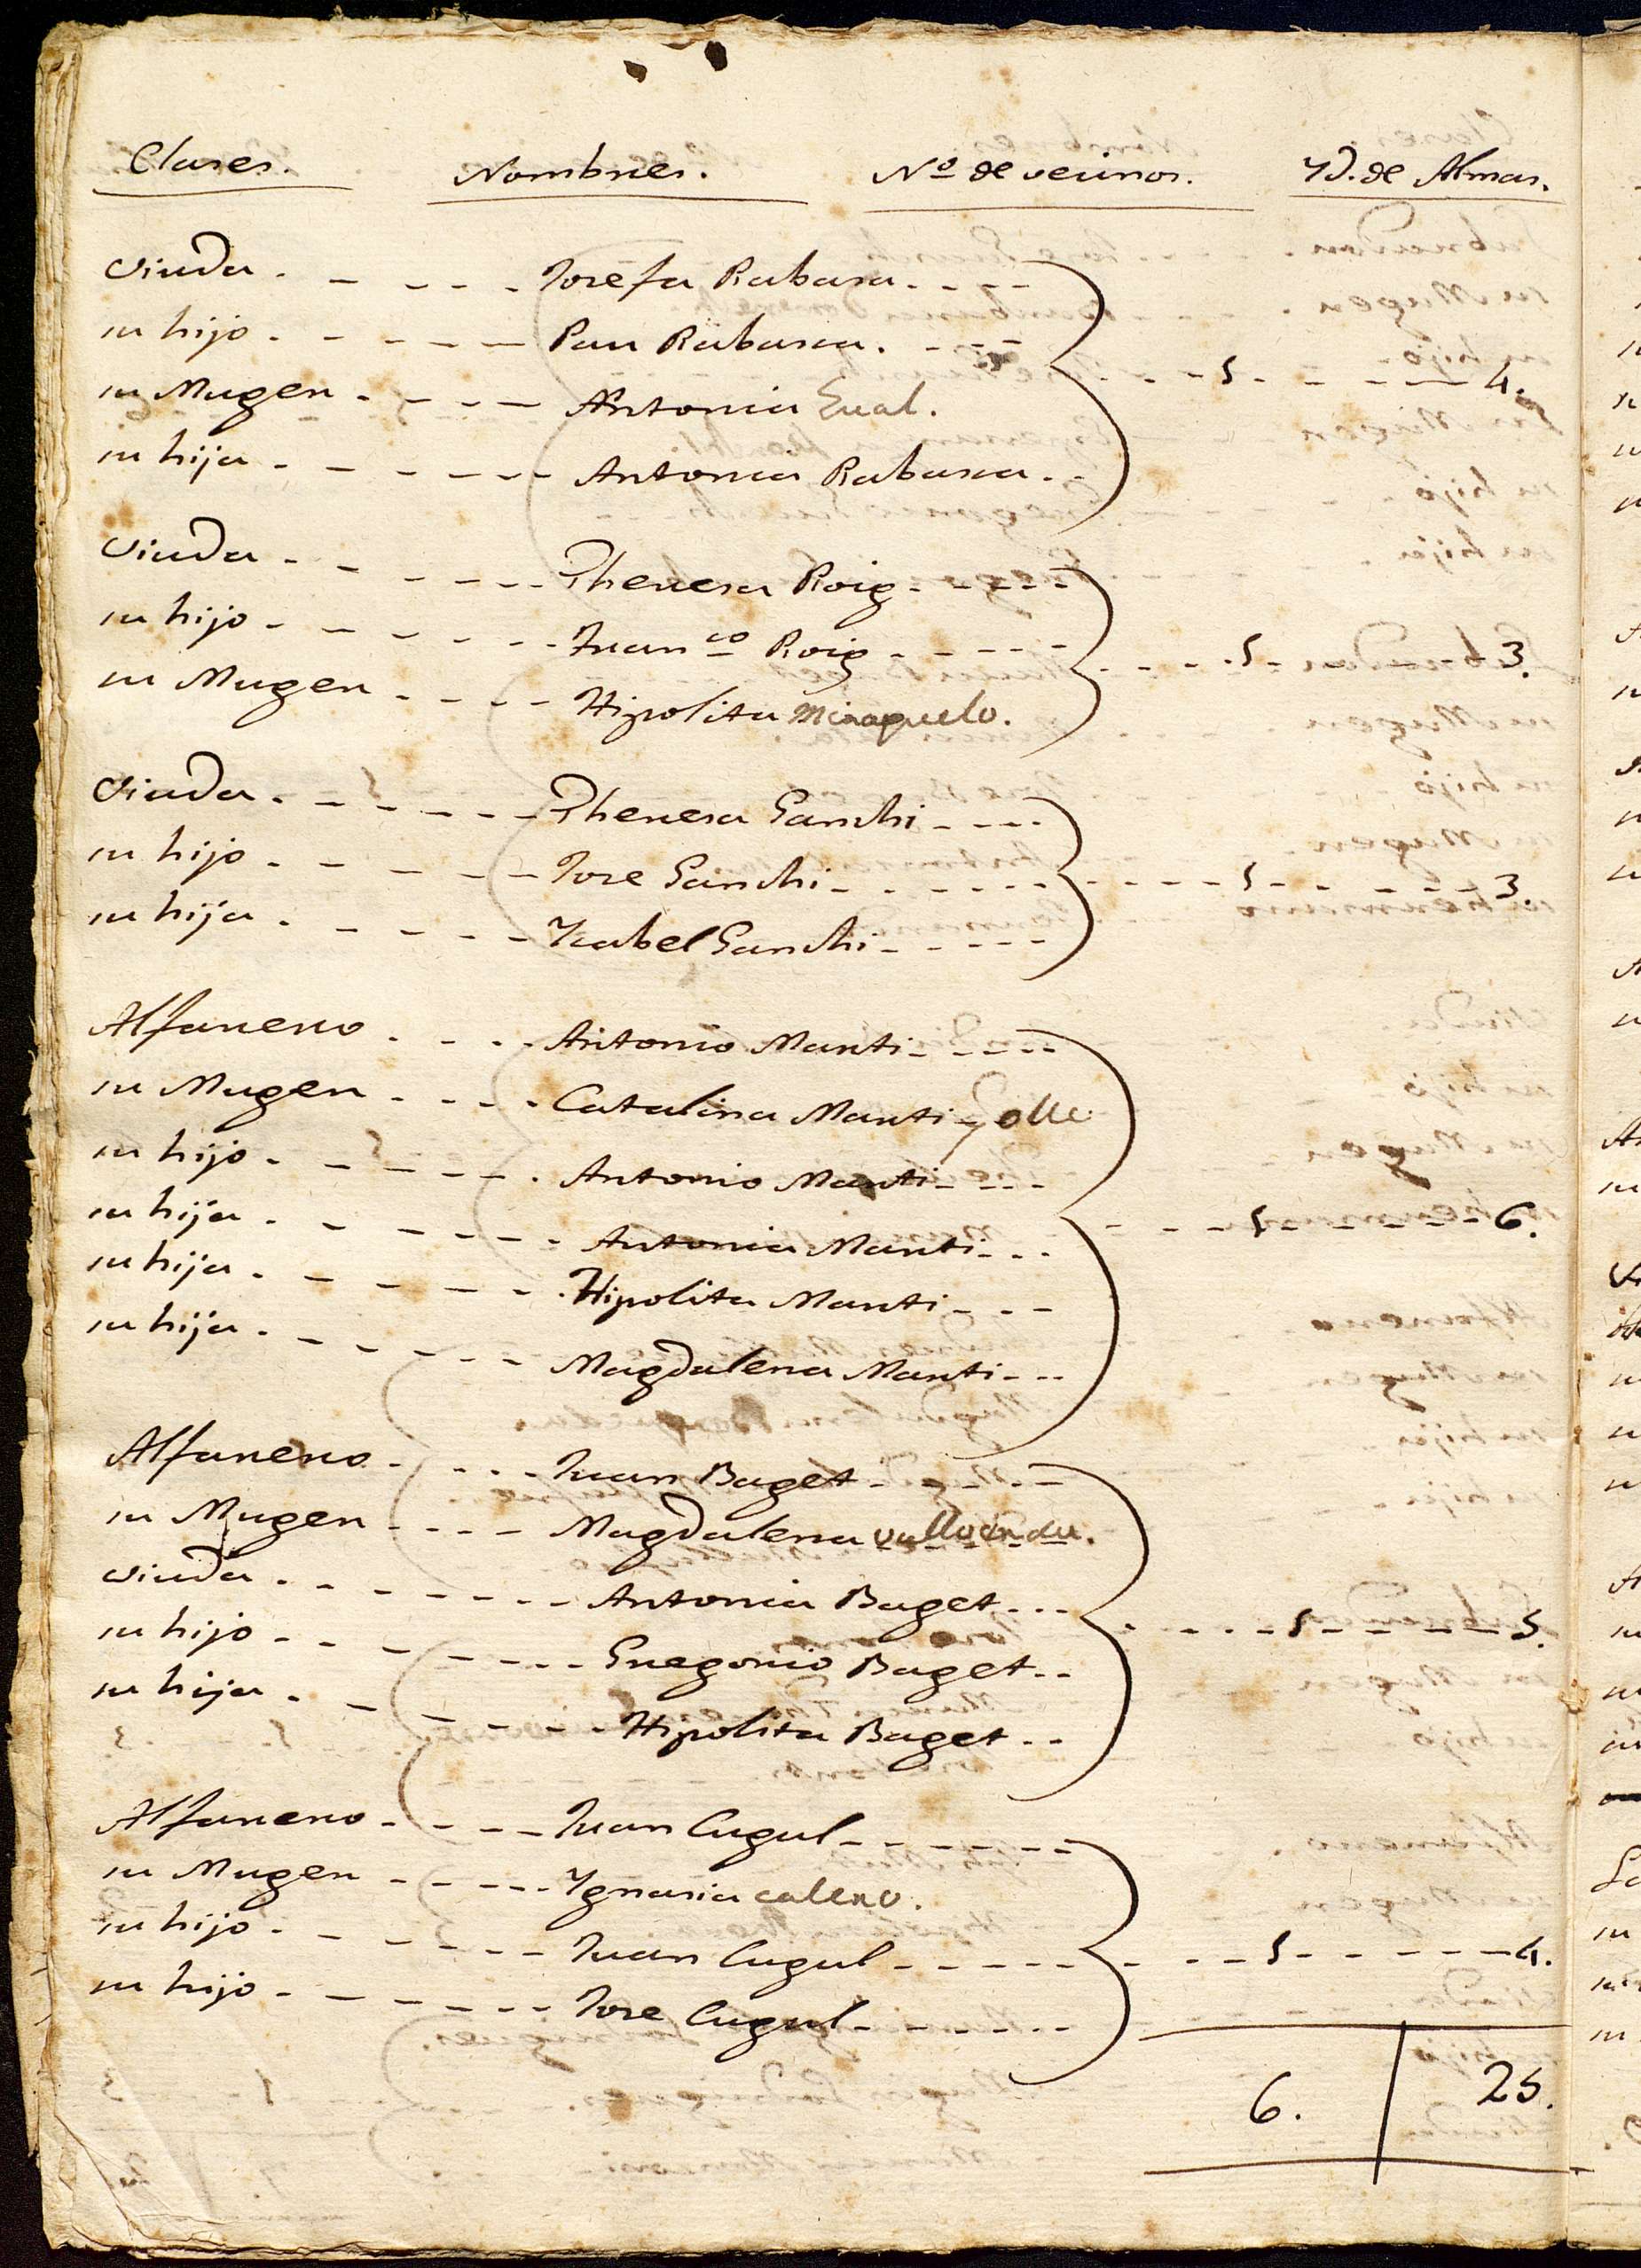 Clases. Nombres. Nº de vecinos. Yd. de Almas.
viuda - - - - - Josefa Rabasa - - - -
su hijo - - - - - Pau Rabasa - - - -
su Muger - - - - Antonia Gual. - - - 1 - - - - 4.
su hija - - - - - - Antonia Rabasa - -
viuda - - - - - - Theresa Roig - - - - -
su hijo - - - - - - Juan co Roig - - - - - - - - - 1 - - - - 3.
su Muger - - - - Hipolita Miraquelo.
viuda - - - - - - Theresa Sanchi - - - -
su hijo - - - - - Jose Sanchi - - - - - - - - - - 1 - - - - - 3.
su hija - - - - - Ysabel Sanchi - - - - -
Alfarero - - - - Antonio Marti - - - - -
su Muger - - - - Catalina Marti - Folle
su hijo - - - - - - Antonio Marti - - - -
su hija - - - - - - Antonia Marti - - - - - - - 1 - - - - - - 6.
su hija - - - - - - Hipolita Marti - - -
su hija - - - - - - Magdalena Marti - - -
Alfarero - - - - Juan Baget - - - - -
su Muger - - - - Magdalena
viuda - - - - - - - Antonia Baget - - -
su hijo - - - - - - - Gregorio Baget - - - - - - 1 - - - - - 5.
su hija - - - - - - - Hipolita Baget - -
Alfarero - - - - Juan Cugul - - - - - -
su Muger - - - - - Ygnasia calero.
su hijo - - - - - - Juan Cugul - - - - - - - - - 1 - - - - - 4.
su hijo - - - - - - - Jose Cugul - - - - - -
6. 25.